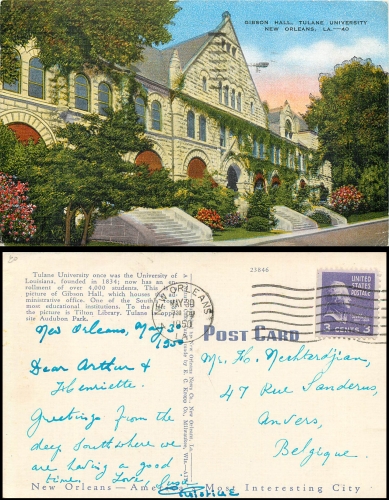 GIBSON HALL, TULANE UNIVERSITY
NEW ORLEANS, LA.—40
Tulane University once was the University of
Louisiana, founded in 1834; now has an en-
rollment of over 4,000 students. This
picture of Gibson Hall, which houses
ministrative office. One of the South
most educational institutions. To the
the picture is Tilton Library. Tulane
site Audubon Park.
23846
NEW ORLEANS
MAY 30
1950
3 CENTS 3
POST CARD
New Orleans, May 30
1950
Dear Arthur &
Henriette.
Greetings from the
deep South where we
are having a good
time. Love,
Mr. H. Nechterdjian,
47 Rue Sanderus,
Anvers,
Belgique.
New Orleans—America's Most Interesting City